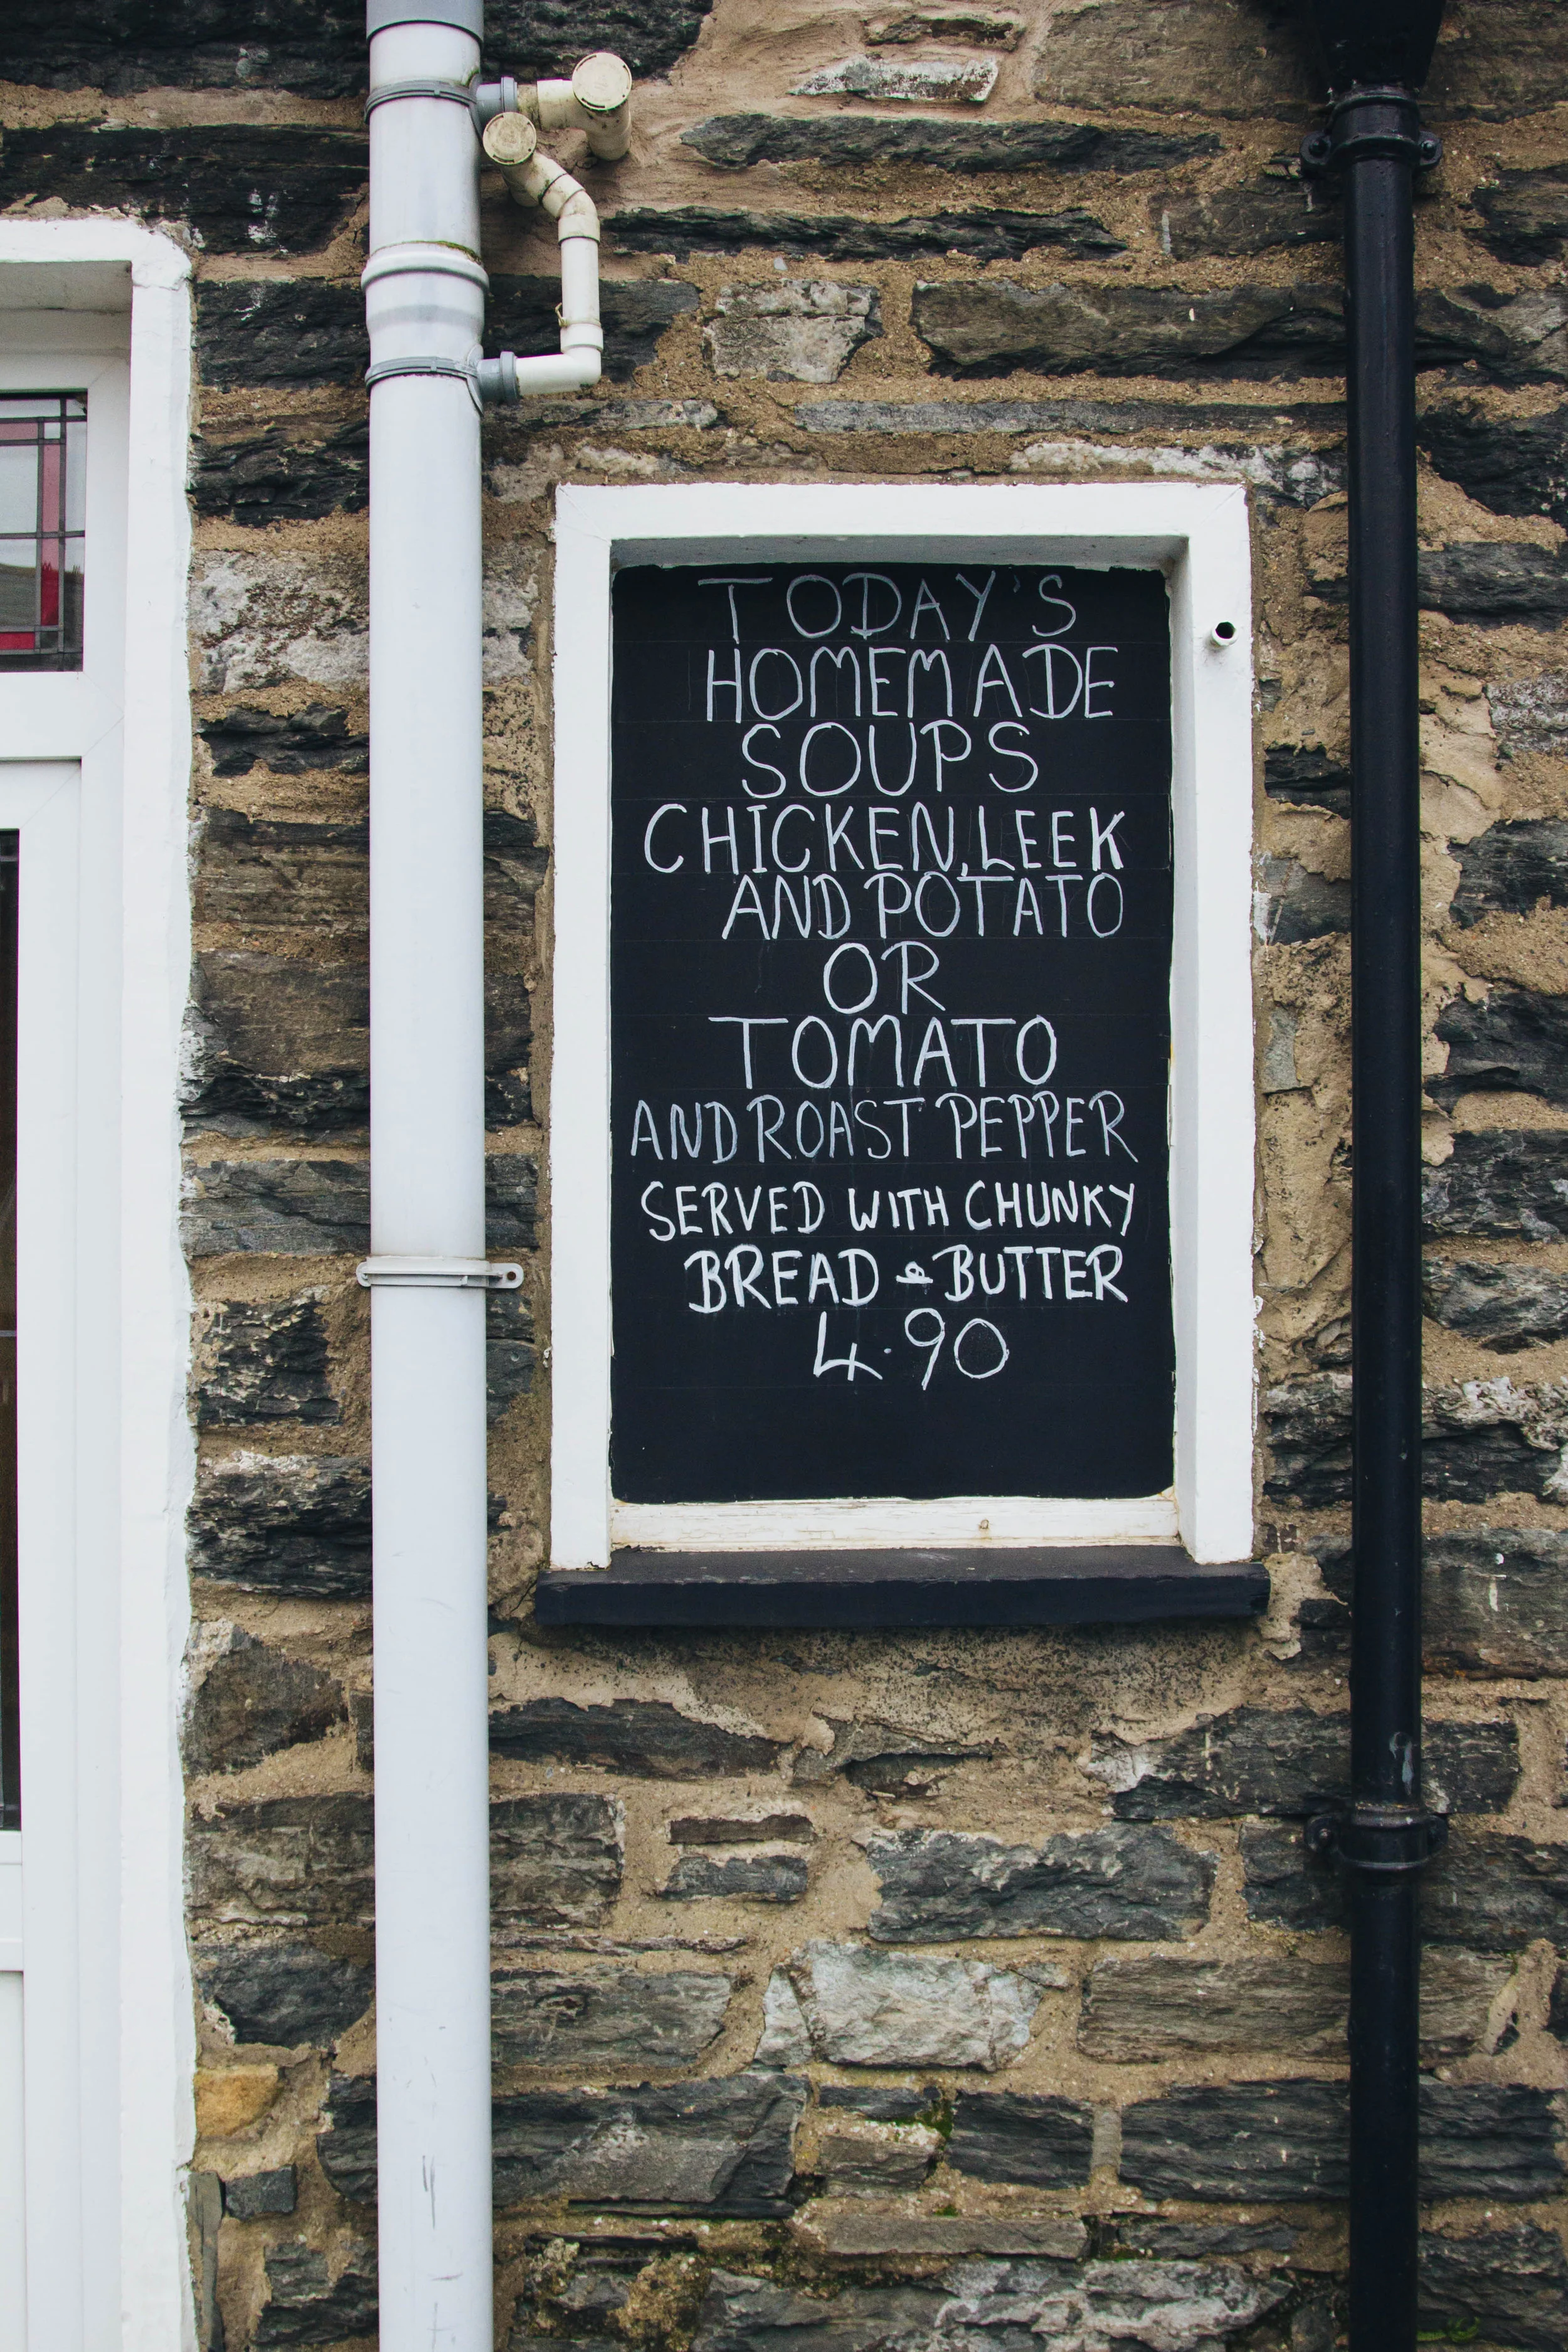 TODAY'S
HOMEMADE
SOUPS
CHICKEN, LEEK
AND POTATO
OR
TOMATO
AND ROAST PEPPER
SERVED WITH CHUNKY
BREAD & BUTTER
4.90